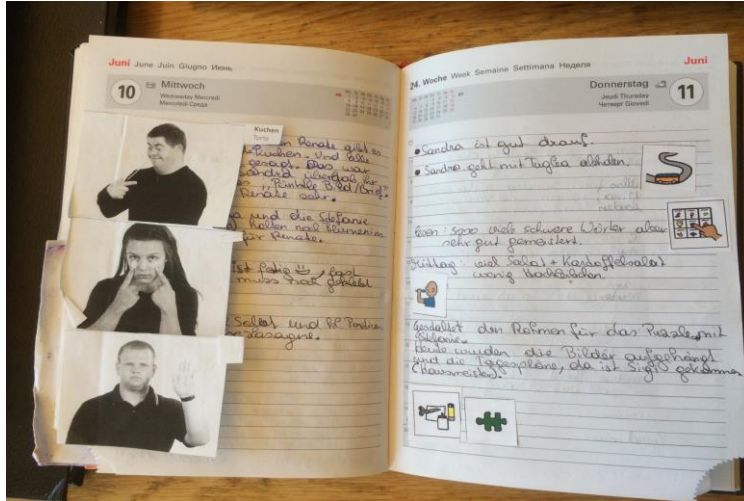 Juni June Juin Giugno Июнь
10
Mittwoch
Wednesday Mercredi
Mercoledì Среда
Kuchen
Torte
Renate gibt es
Kuchen. Und alle
gesagt. Das war
Sandra übergab ihr
Bild/Brief"
Renate sehr.
und die Stefanie
holten noch Blumen
für Renate.
ist fertig, fast
muss noch geklebt
Salat und 1/2 Portion
Lasagne.
24. Woche Week Semaine Settimana Неделя
Juni
Donnerstag
Jeudi Thursday
Четверг Giovedì
11
• Sandra ist gut drauf.
• Sandra geht mit
Lesen: sooo viele schwere Wörter aber
sehr gut gemeistert.
Mittag: viel Salat + Kartoffelsalat
wenig
Gestaltet den Rahmen für das Puzzle mit
Stefanie.
Heute wurden die Bilder aufgehängt
und die Tagespläne, da ist Sigi gekommen
(Hausmeister).